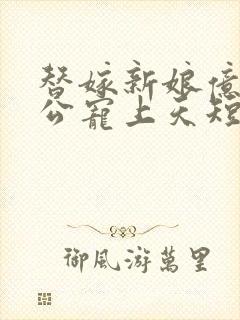 替嫁新娘億
公寵上天短
御風游萬里